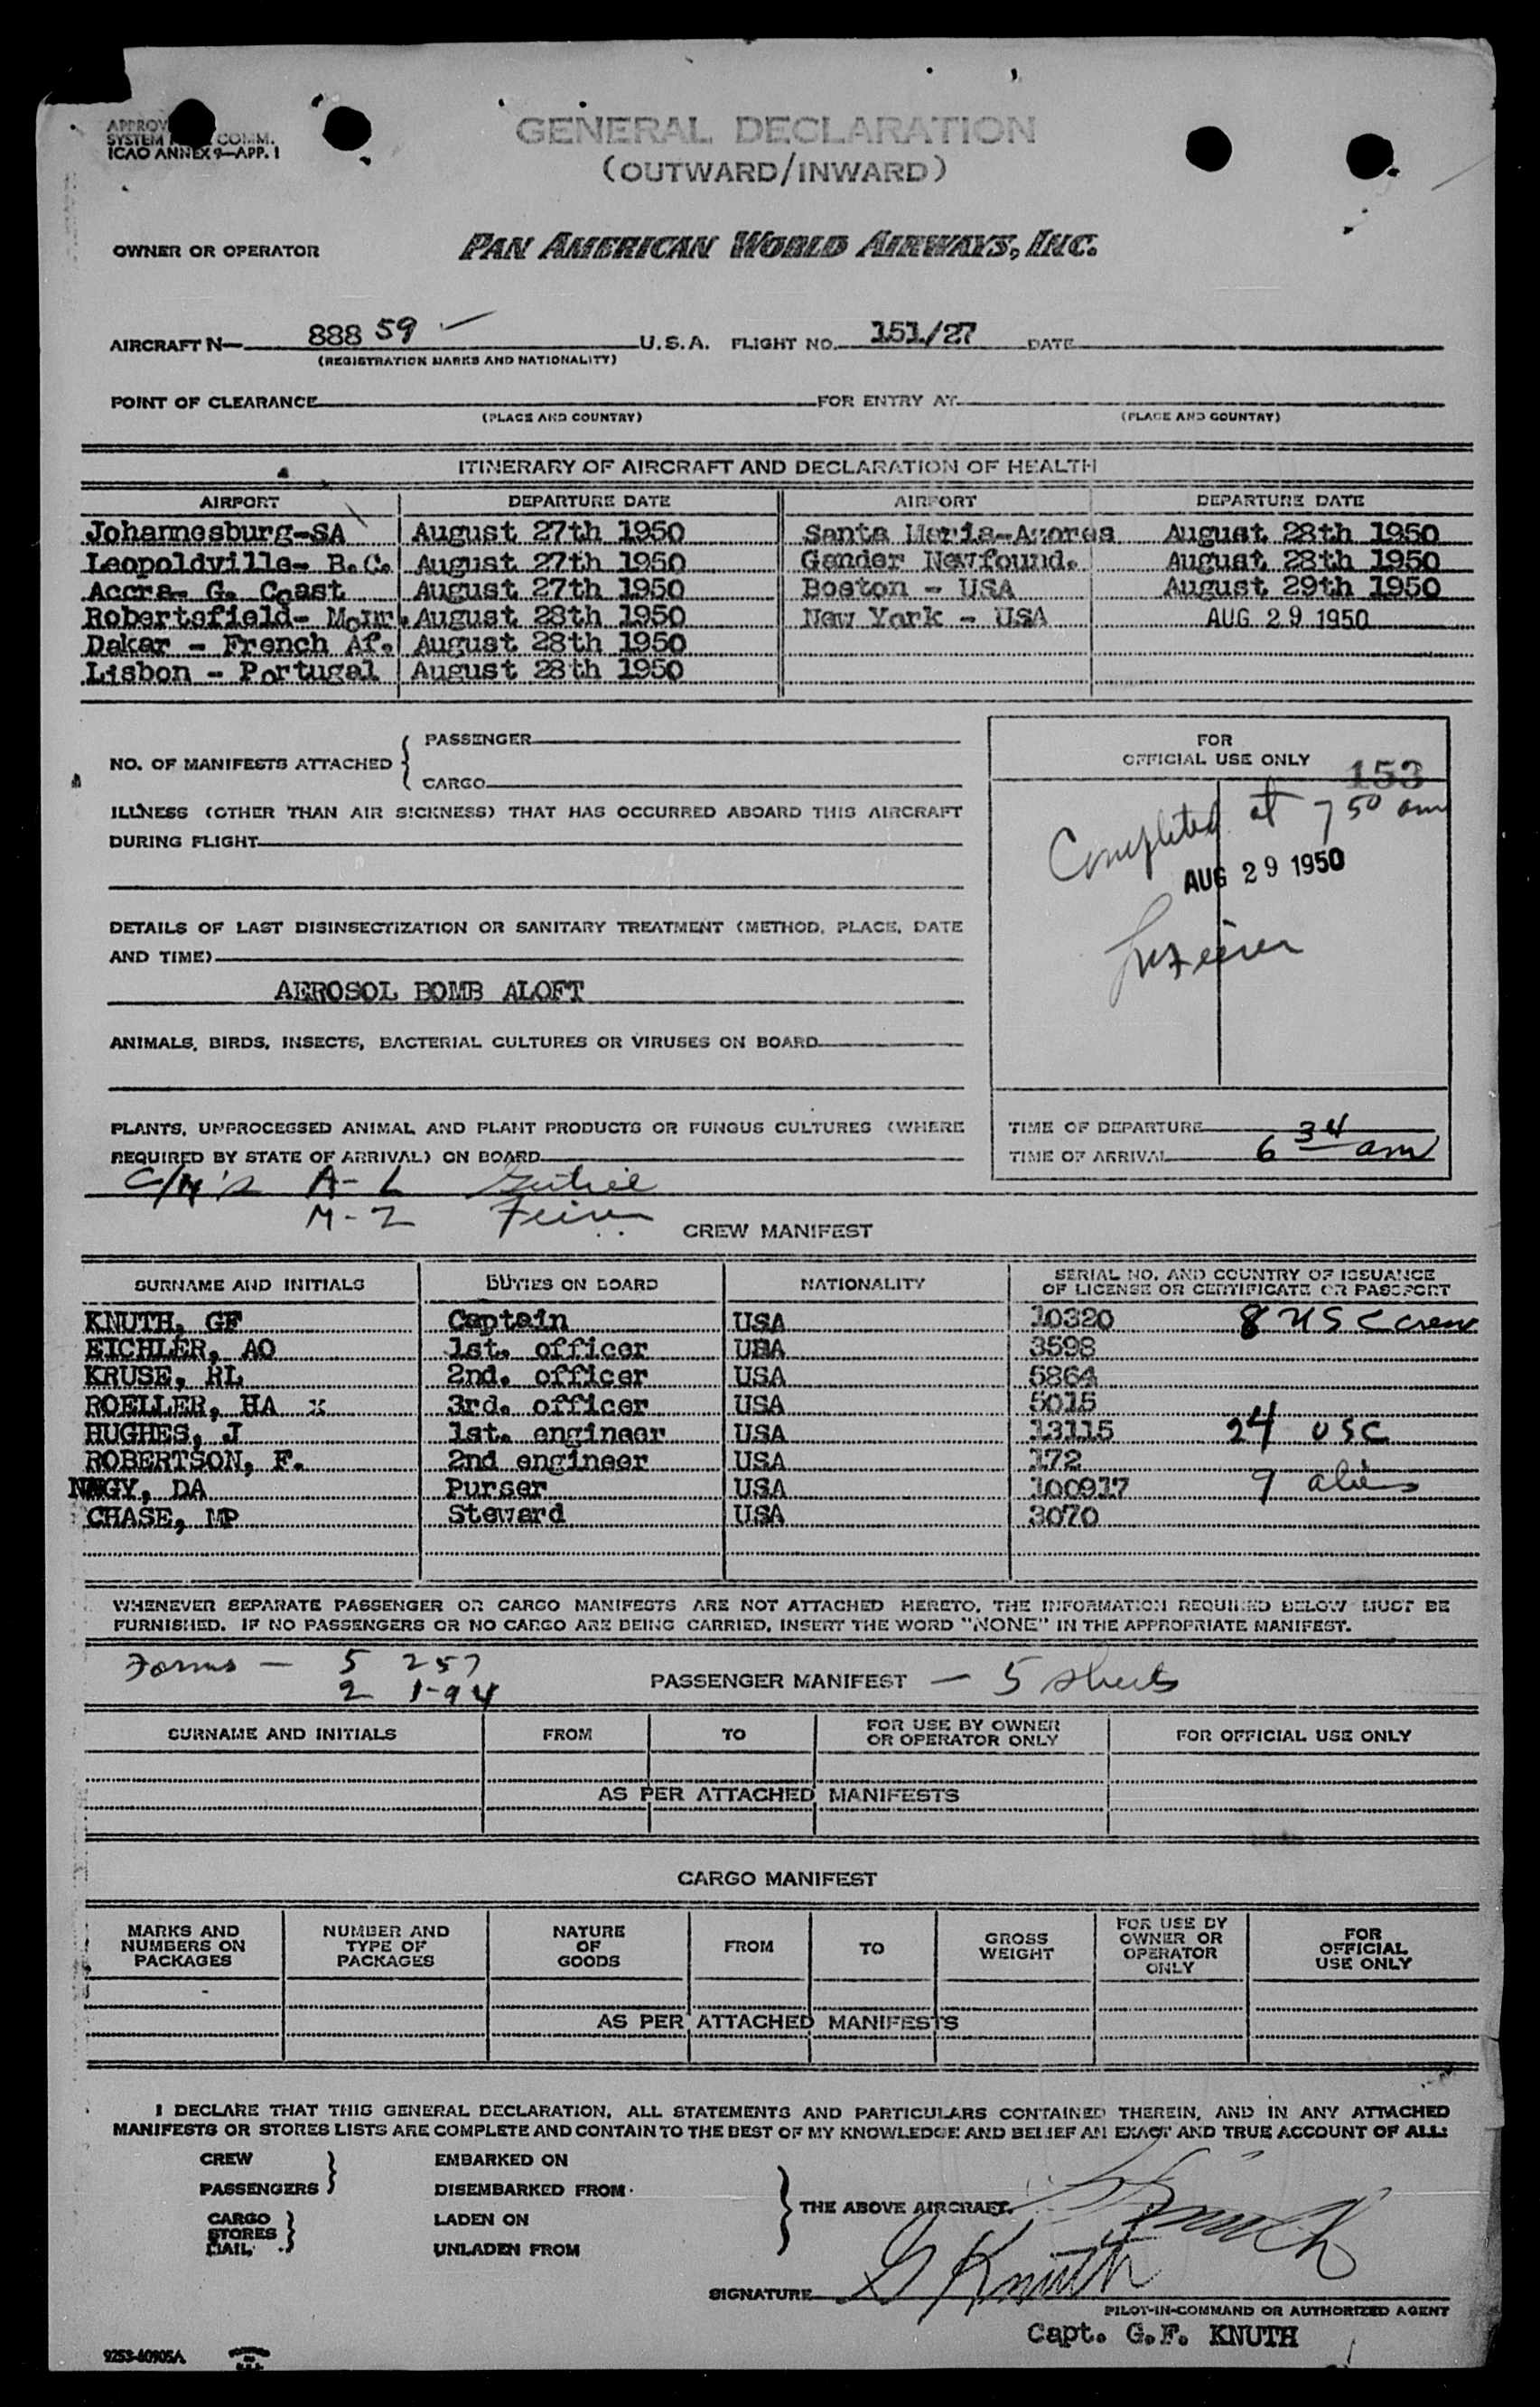 ICAO ANNEX 9—APP. 1
GENERAL DECLARATION
(OUTWARD/INWARD)
OWNER OR OPERATOR PAN AMERICAN WORLD AIRWAYS, INC.
AIRCRAFT N— 888 59 U.S.A. FLIGHT NO. 151/27 DATE
(REGISTRATION MARKS AND NATIONALITY)
POINT OF CLEARANCE FOR ENTRY AT
(PLACE AND COUNTRY) (PLACE AND COUNTRY)
ITINERARY OF AIRCRAFT AND DECLARATION OF HEALTH
AIRPORT DEPARTURE DATE AIRPORT DEPARTURE DATE
Johannesburg-SA August 27th 1950 Santa Maria-Azores August 28th 1950
Leopoldville- B.C. August 27th 1950 Gander Newfound. August 28th 1950
Accra- G. Coast August 27th 1950 Boston - USA August 29th 1950
Robertsfield- August 28th 1950 New York - USA AUG 29 1950
Dakar - French Af. August 28th 1950
Lisbon - Portugal August 28th 1950
NO. OF MANIFESTS ATTACHED { PASSENGER
CARGO
ILLNESS (OTHER THAN AIR SICKNESS) THAT HAS OCCURRED ABOARD THIS AIRCRAFT
DURING FLIGHT
DETAILS OF LAST DISINSECTIZATION OR SANITARY TREATMENT (METHOD, PLACE, DATE
AND TIME)
AEROSOL BOMB ALOFT
ANIMALS, BIRDS, INSECTS, BACTERIAL CULTURES OR VIRUSES ON BOARD
PLANTS, UNPROCESSED ANIMAL AND PLANT PRODUCTS OR FUNGUS CULTURES (WHERE
REQUIRED BY STATE OF ARRIVAL) ON BOARD
FOR
OFFICIAL USE ONLY
153
Completed at 7 50 am
AUG 29 1950
TIME OF DEPARTURE
TIME OF ARRIVAL 6 34 am
A-L
M-Z
CREW MANIFEST
SURNAME AND INITIALS DUTIES ON BOARD NATIONALITY SERIAL NO. AND COUNTRY OF ISSUANCE
OF LICENSE OR CERTIFICATE OR PASSPORT
KNUTH, GF Captain USA 10320 8 USC crew
EICHLER, AO 1st. officer USA 3598
KRUSE, RL 2nd. officer USA 5864
ROELLER, HA x 3rd. officer USA 5015
HUGHES, J 1st. engineer USA 13115 24 USC
ROBERTSON, F. 2nd engineer USA 172
NAGY, DA Purser USA 100917 9 aliens
CHASE, MP Steward USA 3070
WHENEVER SEPARATE PASSENGER OR CARGO MANIFESTS ARE NOT ATTACHED HERETO, THE INFORMATION REQUIRED BELOW MUST BE
FURNISHED. IF NO PASSENGERS OR NO CARGO ARE BEING CARRIED, INSERT THE WORD "NONE" IN THE APPROPRIATE MANIFEST.
Forms — 5 257
2 I-94
PASSENGER MANIFEST — 5 sheets
SURNAME AND INITIALS FROM TO FOR USE BY OWNER
OR OPERATOR ONLY FOR OFFICIAL USE ONLY
AS PER ATTACHED MANIFESTS
CARGO MANIFEST
MARKS AND
NUMBERS ON
PACKAGES
NUMBER AND
TYPE OF
PACKAGES
NATURE
OF
GOODS
FROM
TO
GROSS
WEIGHT
FOR USE BY
OWNER OR
OPERATOR
ONLY
FOR
OFFICIAL
USE ONLY
AS PER ATTACHED MANIFESTS
I DECLARE THAT THIS GENERAL DECLARATION, ALL STATEMENTS AND PARTICULARS CONTAINED THEREIN, AND IN ANY ATTACHED
MANIFESTS OR STORES LISTS ARE COMPLETE AND CONTAIN TO THE BEST OF MY KNOWLEDGE AND BELIEF AN EXACT AND TRUE ACCOUNT OF ALL:
CREW EMBARKED ON
PASSENGERS DISEMBARKED FROM
THE ABOVE AIRCRAFT.
CARGO LADEN ON
STORES
MAIL UNLADEN FROM
SIGNATURE G Knuth
PILOT-IN-COMMAND OR AUTHORIZED AGENT
Capt. G.F. KNUTH
9253-60905A